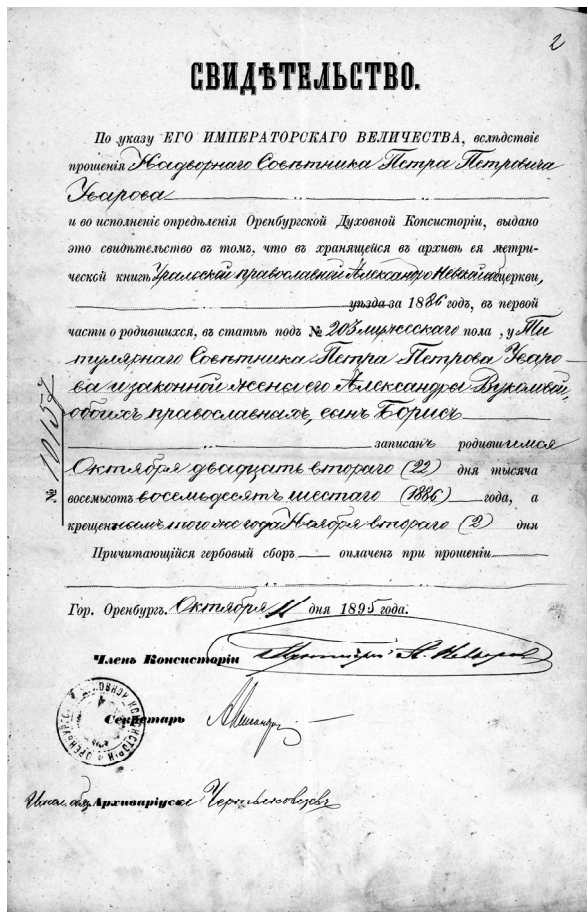 2
СВИДѢТЕЛЬСТВО.
По указу ЕГО ИМПЕРАТОРСКАГО ВЕЛИЧЕСТВА, вслѣдствіе
прошенія Надворнаго Совѣтника Петра Петровича
Уварова
и во исполненіе опредѣленія Оренбургской Духовной Консисторіи, выдано
это свидѣтельство въ томъ, что въ хранящейся въ архивѣ ея метри-
ческой книгѣ Уральской православной Александро Невской церкви,
уѣзда за 1886 годъ, въ первой
части о родившихся, въ статьѣ подъ № 203 мужескаго пола, у Ти
тулярнаго Совѣтника Петра Петрова Уваро
ва и законной жены его Александры
обоихъ православныхъ, сынъ Борисъ
записанъ родившимся
Октября двадцать втораго (22) дня тысяча
восемьсотъ восемьдесятъ шестаго (1886) года, а
крещеннымъ того же года Ноября втораго (2) дня
№ 10152
Причитающійся гербовый сборъ оплаченъ при прошеніи
Гор. Оренбургъ. Октября 11 дня 1895 года.
Членъ Консисторіи Протоіерей
Секретарь
ДУХОВНОЙ КОНСИСТОРІИ
Архиваріуса